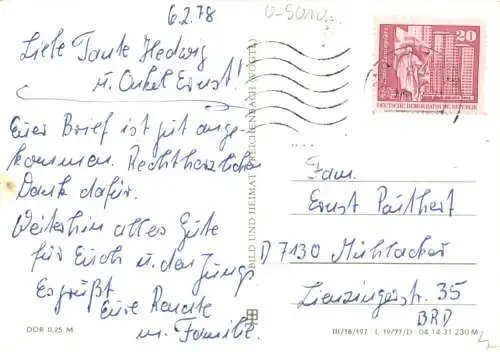 6.2.78
Liebe Tante Hedwig
u. Onkel Ernst!
Euer Brief ist gut ange-
kommen. Rechtherzlichen
Dank dafür.
Weiterhin alles Gute
für Euch u. den Jungs
Es grüßt
Eure Renate
u. Familie.
DDR 0,25 M
BILD UND HEIMAT REICHENBACH
20
DEUTSCHE DEMOKRATISCHE REPUBLIK
Fam.
Ernst
D 7130 Mühlacker
Lienzingerstr. 35
BRD
III/18/197 L 19/77/D 04 14 31 230 M